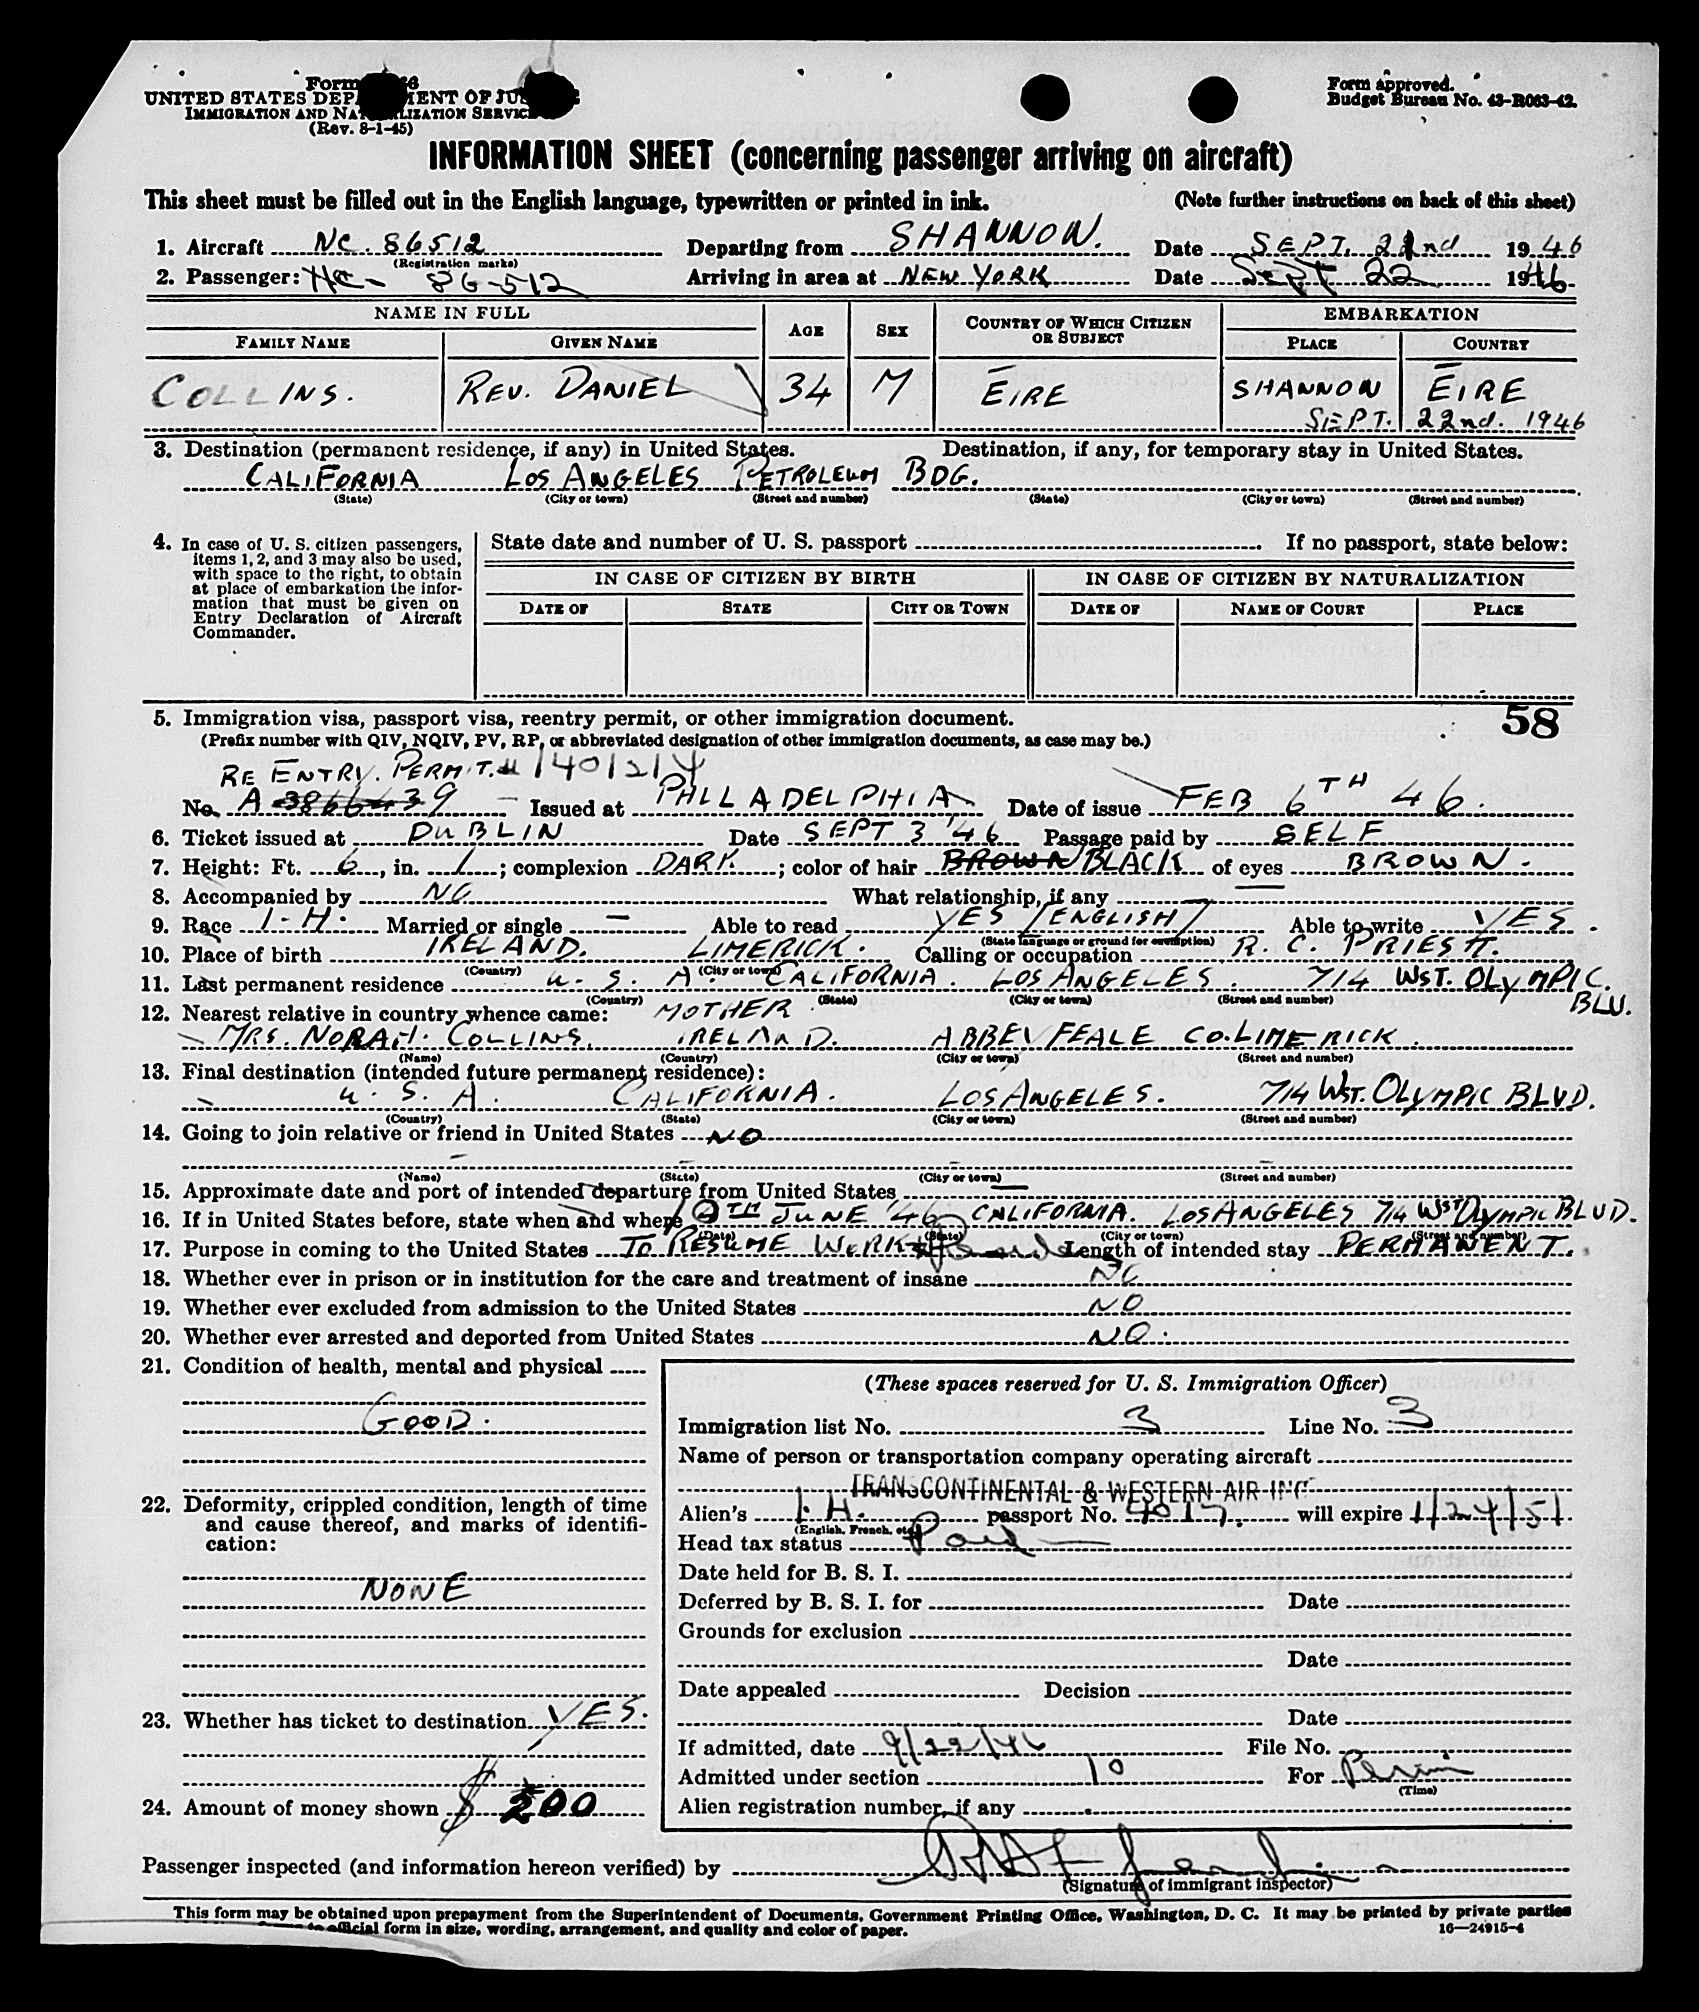 Form
UNITED STATES DEPARTMENT OF JUSTICE
IMMIGRATION AND NATURALIZATION SERVICE
(Rev. 8-1-45)
Form approved.
Budget Bureau No. 43-R063-42.
INFORMATION SHEET (concerning passenger arriving on aircraft)
This sheet must be filled out in the English language, typewritten or printed in ink. (Note further instructions on back of this sheet)
1. Aircraft NC. 86512 Departing from SHANNON. Date SEPT. 22nd 1946
(Registration marks)
2. Passenger: 86512 Arriving in area at NEW YORK Date Sept 22 1946
NAME IN FULL AGE SEX COUNTRY OF WHICH CITIZEN OR SUBJECT EMBARKATION
FAMILY NAME GIVEN NAME PLACE COUNTRY
COLLINS. REV. DANIEL 34 M EIRE SHANNON EIRE
SEPT. 22nd. 1946
3. Destination (permanent residence, if any) in United States. Destination, if any, for temporary stay in United States.
CALIFORNIA LOS ANGELES PETROLEUM BDG.
(State) (City or town) (Street and number) (State) (City or town) (Street and number)
4. In case of U. S. citizen passengers, items 1, 2, and 3 may also be used, with space to the right, to obtain at place of embarkation the information that must be given on Entry Declaration of Aircraft Commander.
State date and number of U. S. passport If no passport, state below:
IN CASE OF CITIZEN BY BIRTH IN CASE OF CITIZEN BY NATURALIZATION
DATE OF STATE CITY OR TOWN DATE OF NAME OF COURT PLACE
58
5. Immigration visa, passport visa, reentry permit, or other immigration document.
(Prefix number with QIV, NQIV, PV, RP, or abbreviated designation of other immigration documents, as case may be.)
RE ENTRY. PERMIT. # 1401214
No. A 3866439 Issued at PHILLADELPHIA Date of issue FEB 6TH 46.
6. Ticket issued at DUBLIN Date SEPT 3 '46 Passage paid by SELF
7. Height: Ft. 6, in. 1; complexion DARK; color of hair BROWN BLACK of eyes BROWN.
8. Accompanied by NO What relationship, if any
9. Race I. H. Married or single — Able to read YES [ENGLISH] Able to write YES.
(State language or ground for exemption)
10. Place of birth IRELAND. LIMERICK. Calling or occupation R. C. PRIEST.
(Country) (City or town)
11. Last permanent residence U. S. A. CALIFORNIA. LOS ANGELES. 714 WST. OLYMPIC. BLV.
(Country) (State) (City or town) (Street and number)
12. Nearest relative in country whence came: MOTHER
MRS. NORAH. COLLINS. IRELAND. ABBEYFEALE CO. LIMERICK.
(Name) (Country) (City or town) (Street and number)
13. Final destination (intended future permanent residence):
U. S. A. CALIFORNIA. LOS ANGELES. 714 WST. OLYMPIC BLVD.
(Country) (State) (City or town) (Street and number)
14. Going to join relative or friend in United States NO
(Name) (State) (City or town) (Street and number)
15. Approximate date and port of intended departure from United States —
16. If in United States before, state when and where 10TH JUNE '46 CALIFORNIA. LOS ANGELES 714 WST OLYMPIC BLVD.
(Date) (State) (City or town) (Street and number)
17. Purpose in coming to the United States TO RESUME WORK Length of intended stay PERMANENT.
18. Whether ever in prison or in institution for the care and treatment of insane NO
19. Whether ever excluded from admission to the United States NO
20. Whether ever arrested and deported from United States NO.
21. Condition of health, mental and physical
GOOD.
22. Deformity, crippled condition, length of time and cause thereof, and marks of identification:
NONE
23. Whether has ticket to destination YES.
24. Amount of money shown $ 200
(These spaces reserved for U. S. Immigration Officer)
Immigration list No. 3 Line No. 3
Name of person or transportation company operating aircraft
TRANSCONTINENTAL & WESTERN AIR INC
Alien's I. H. passport No. 4017. will expire 1/24/51
(English, French, etc.)
Head tax status Paid
Date held for B. S. I.
Deferred by B. S. I. for Date
Grounds for exclusion
Date
Date appealed Decision
Date
If admitted, date 9/22/46 File No.
Admitted under section 10 For Perm
(Time)
Alien registration number, if any
Passenger inspected (and information hereon verified) by
(Signature of immigrant inspector)
This form may be obtained upon prepayment from the Superintendent of Documents, Government Printing Office, Washington, D. C. It may be printed by private parties
to official form in size, wording, arrangement, and quality and color of paper.
16—24915-4